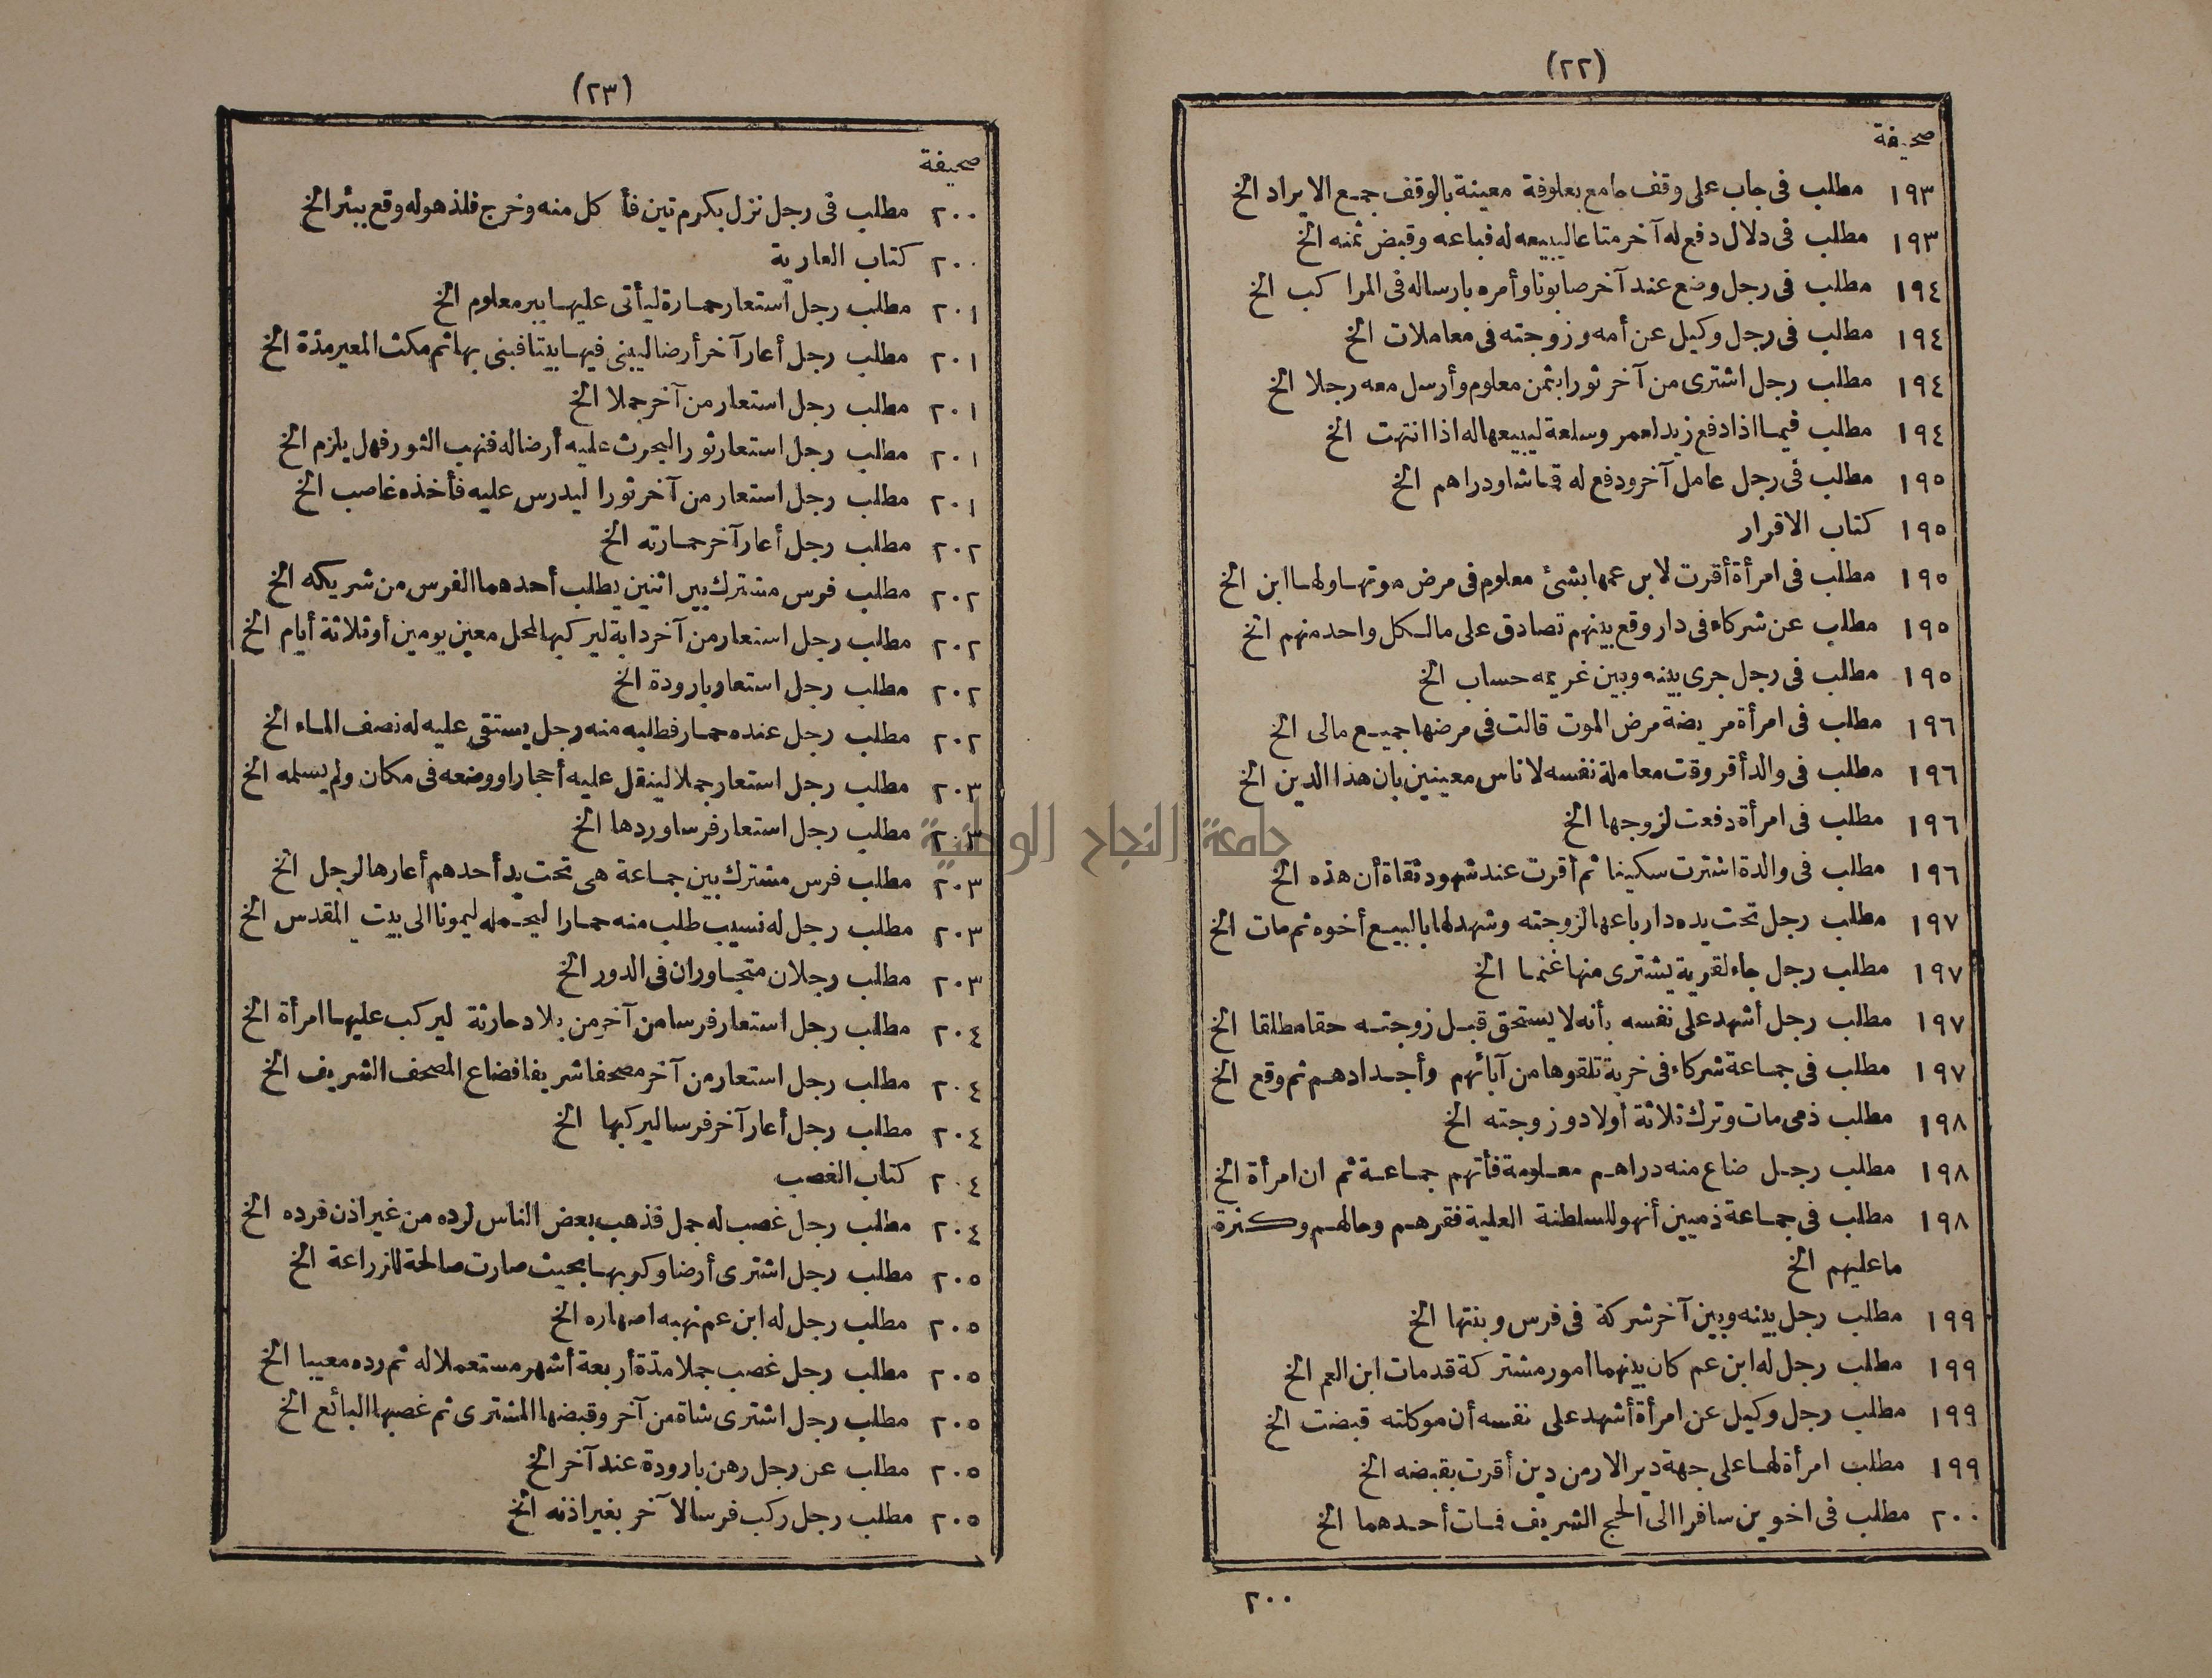 (٢٢)
صحيفة
١٩٣ مطلب فى جاب على وقف جامع بعلوفة معينة بالوقف جمع الايراد الخ
١٩٣ مطلب فى دلال دفع له آخر متاعا ليبيعه له فباعه وقبض ثمنه الخ
١٩٤ مطلب فى رجل وضع عند آخر صابونا وأمره بارساله فى المراكب الخ
١٩٤ مطلب فى رجل وكيل عن أمه وزوجته فى معاملات الخ
١٩٤ مطلب رجل اشترى من آخر ثورا بثمن معلوم وأرسل معه رجلا الخ
١٩٤ مطلب فيما اذا دفع زيد لعمر وسلعة ليبيعها له اذا انتهت الخ
١٩٥ مطلب فى رجل عامل آخر ودفع له قماشا ودراهم الخ
١٩٥ كتاب الاقرار
١٩٥ مطلب فى امرأة أقرت لابن عمها بشئ معلوم فى مرض موتها ولها ابن الخ
١٩٥ مطلب عن شركاء فى دار وقع بينهم تصادق على مالكل واحد منهم الخ
١٩٥ مطلب فى رجل جرى بينه وبين غريمه حساب الخ
١٩٦ مطلب فى امرأة مريضة مرض الموت قالت فى مرضها جميع مالى الخ
١٩٦ مطلب فى والد أقر وقت معاملة نفسه لاناس معينين بان هذا الدين الخ
١٩٦ مطلب فى امرأة دفعت لزوجها الخ
١٩٦ مطلب فى والدة اشترت سكينا ثم أقرت عند شهود ثقاة أن هذه الخ
١٩٧ مطلب رجل تحت يده دار باعها لزوجته وشهد لها بالبيع أخوه ثم مات الخ
١٩٧ مطلب رجل جاء لقرية يشترى منها غنما الخ
١٩٧ مطلب رجل أشهد على نفسه بأنه لا يستحق قبل زوجته حقا مطلقا الخ
١٩٧ مطلب فى جماعة شركاء فى خربة تلقوها من آبائهم وأجدادهم ثم وقع الخ
١٩٨ مطلب ذمى مات وترك ثلاثة أولاد وزوجته الخ
١٩٨ مطلب رجل ضاع منه دراهم معلومة فأتهم جماعة ثم ان امرأة الخ
١٩٨ مطلب فى جماعة ذميين أنهو للسلطنة العلية فقرهم وحالهم وكثرة
ماعليهم الخ
١٩٩ مطلب رجل بينه وبين آخر شركة فى فرس وبنتها الخ
١٩٩ مطلب رجل له ابن عم كان بينهما امور مشتركة قدمات ابن العم الخ
١٩٩ مطلب رجل وكيل عن امرأة أشهد على نفسه أن موكلته قبضت الخ
١٩٩ مطلب امرأة لها على جهة دير الارمن دين أقرت بقبضه الخ
٢٠٠ مطلب فى اخوين سافرا الى الحج الشريف فمات أحدهما الخ
٢٠٠
(٢٣)
صحيفة
٢٠٠ مطلب فى رجل نزل بكرم تين فأكل منه وخرج فلذهوله وقع ببئر الخ
٢٠٠ كتاب العارية
٢٠١ مطلب رجل استعار حمارة ليأتى عليها ببر معلوم الخ
٢٠١ مطلب رجل أعار آخر أرضا ليبنى فيها بيتا فبنى بها ثم مكث المعير مدّة الخ
٢٠١ مطلب رجل استعار من آخر جملا الخ
٢٠١ مطلب رجل استعار ثورا ليحرث عليه أرضا له فنهب الثور فهل يلزم الخ
٢٠١ مطلب رجل استعار من آخر ثورا ليدرس عليه فأخذه غاصب الخ
٢٠٢ مطلب رجل أعار آخر حمارته الخ
٢٠٢ مطلب فرس مشترك بين اثنين يطلب أحدهما الفرس من شريكه الخ
٢٠٢ مطلب رجل استعار من آخر دابة ليركبها لمحل معين يومين أو ثلاثة أيام الخ
٢٠٢ مطلب رجل استعار بارودة الخ
٢٠٢ مطلب رجل عنده حمار فطلبه منه رجل يستقى عليه له نصف الماء الخ
٢٠٣ مطلب رجل استعار جملا لينقل عليه أحجارا ووضعه فى مكان ولم يسلمه الخ
٢٠٣ مطلب رجل استعار فرسا وردها الخ
جامعة النجاح الوطنية
٢٠٣ مطلب فرس مشترك بين جماعة هى تحت يد أحدهم أعارها لرجل الخ
٢٠٣ مطلب رجل له نسيب طلب منه حمارا ليحمله ليمونا الى بيت المقدس الخ
٢٠٣ مطلب رجلان متجاوران فى الدور الخ
٢٠٤ مطلب رجل استعار فرسا من آخر من بلاد حارثة ليركب عليها امرأة الخ
٢٠٤ مطلب رجل استعار من آخر مصحفا شريفا فضاع المصحف الشريف الخ
٢٠٤ مطلب رجل أعار آخر فرسا ليركبها الخ
٢٠٤ كتاب الغصب
٢٠٤ مطلب رجل غصب له جمل فذهب بعض الناس لرده من غير اذن فرده الخ
٢٠٥ مطلب رجل اشترى أرضا وكربها بحيث صارت صالحة للزراعة الخ
٢٠٥ مطلب رجل له ابن عم نهبه اصهاره الخ
٢٠٥ مطلب رجل غصب جملا مدّة أربعة أشهر مستعملا له ثم رده معيبا الخ
٢٠٥ مطلب رجل اشترى شاة من آخر وقبضها المشترى ثم غصبها البائع الخ
٢٠٥ مطلب عن رجل رهن بارودة عند آخر الخ
٢٠٥ مطلب رجل ركب فرسا لآخر بغير اذنه الخ